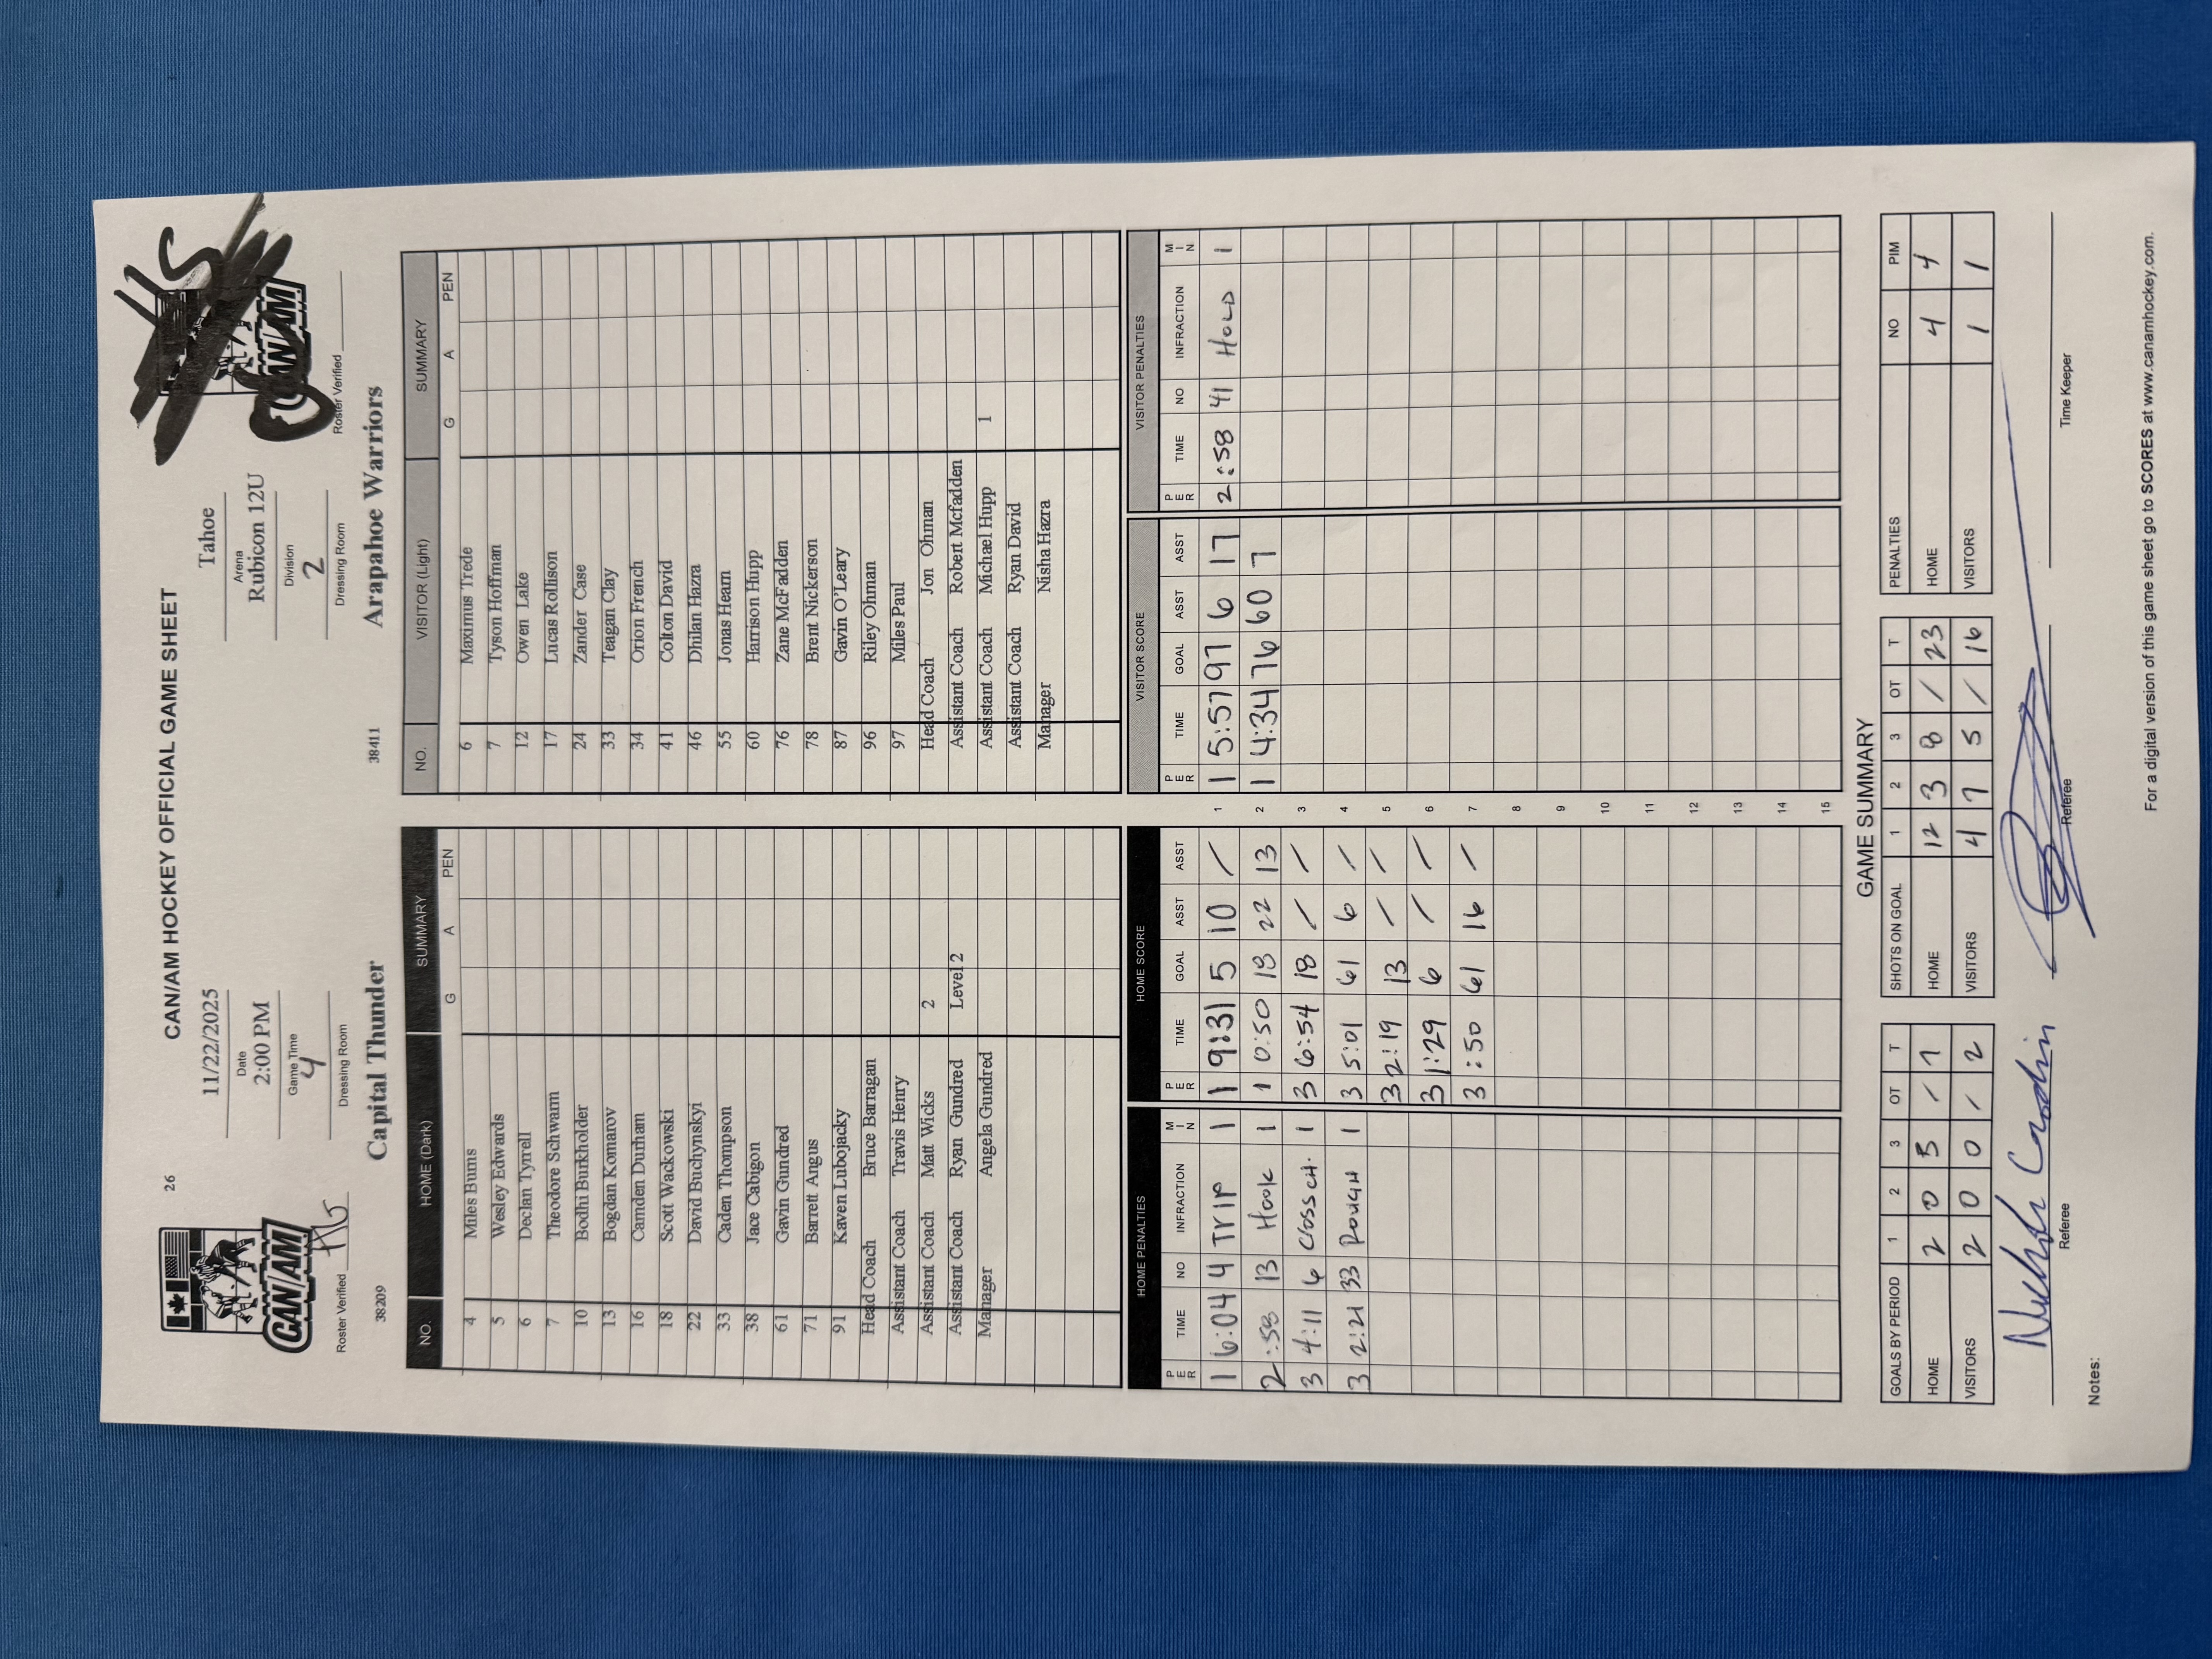 CAN/AM HOCKEY OFFICIAL GAME SHEET
26
CAN/AM
Roster Verified
11/22/2025
Date
2:00 PM
Game Time
4
Dressing Room
Tahoe
Arena
Rubicon 12U
Division
2
Dressing Room
CAN/AM
Roster Verified
38209 Capital Thunder
38411 Arapahoe Warriors
NO. HOME (Dark) SUMMARY
G A PEN
4 Miles Burns
5 Wesley Edwards
6 Declan Tyrrell
7 Theodore Schwarm
10 Bodhi Burkholder
13 Bogdan Komarov
16 Camden Durham
18 Scott Wackowski
22 David Buchynskyi
33 Caden Thompson
38 Jace Cabigon
61 Gavin Gundred
71 Barrett Angus
91 Kaven Lubojacky
Head Coach Bruce Barragan
Assistant Coach Travis Henry
Assistant Coach Matt Wicks 2
Assistant Coach Ryan Gundred Level 2
Manager Angela Gundred
NO. VISITOR (Light) SUMMARY
G A PEN
6 Maximus Trede
7 Tyson Hoffman
12 Owen Lake
17 Lucas Rollison
24 Zander Case
33 Teagan Clay
34 Orion French
41 Colton David
46 Dhilan Hazra
55 Jonas Hearn
60 Harrison Hupp
76 Zane McFadden
78 Brent Nickerson
87 Gavin O'Leary
96 Riley Ohman
97 Miles Paul
Head Coach Jon Ohman
Assistant Coach Robert Mcfadden
Assistant Coach Michael Hupp 1
Assistant Coach Ryan David
Manager Nisha Hazra
HOME PENALTIES
PER TIME NO INFRACTION MIN
1 6:04 4 TRIP 1
2 :58 13 Hook 1
3 4:11 6 CROSSCH. 1
3 2:21 33 ROUGH 1
HOME SCORE
PER TIME GOAL ASST ASST
1 9:31 5 10 /
1 0:50 18 22 13
3 6:54 18 / /
3 5:01 61 6 /
3 2:19 13 / /
3 1:29 6 / /
3 :50 61 16 /
1
2
3
4
5
6
7
8
9
10
11
12
13
14
15
VISITOR SCORE
PER TIME GOAL ASST ASST
1 5:57 97 6 17
1 4:34 76 60 7
VISITOR PENALTIES
PER TIME NO INFRACTION MIN
2 :58 41 HOLD 1
GAME SUMMARY
GOALS BY PERIOD 1 2 3 OT T
HOME 2 0 5 / 7
VISITORS 2 0 0 / 2
SHOTS ON GOAL 1 2 3 OT T
HOME 12 3 8 / 23
VISITORS 4 7 5 / 16
PENALTIES NO PIM
HOME 4 4
VISITORS 1 1
Referee
Referee
Time Keeper
Notes:
For a digital version of this game sheet go to SCORES at www.canamhockey.com.